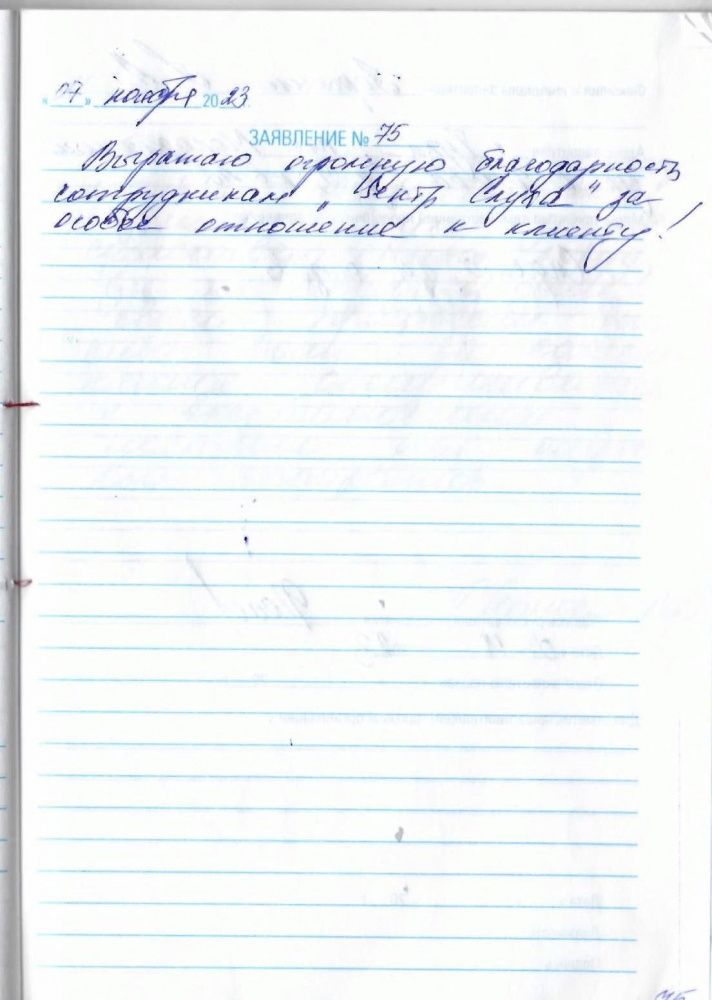 «07» ноября 2023
ЗАЯВЛЕНИЕ № 75
Выражаю огромную благодарность
сотрудникам "Центр Слуха" за
особое отношение к клиенту!